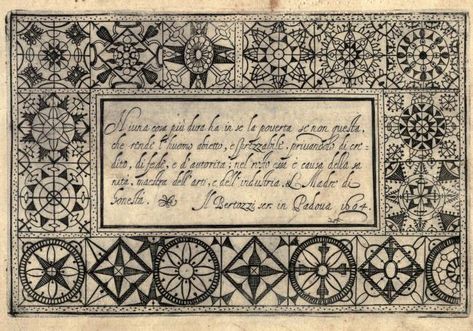 Niuna cosa più dura ha in se la pouerta se non questa,
che rende l'huomo abietto, e sprezzabile, priuandolo di cre
dito, di fede, e d'autorita; nel è causa della sa
nità, maestra dell'arti, e dell'industria, & Madre di
honesta. Il Bertozzi scr. in Padoua 1604.